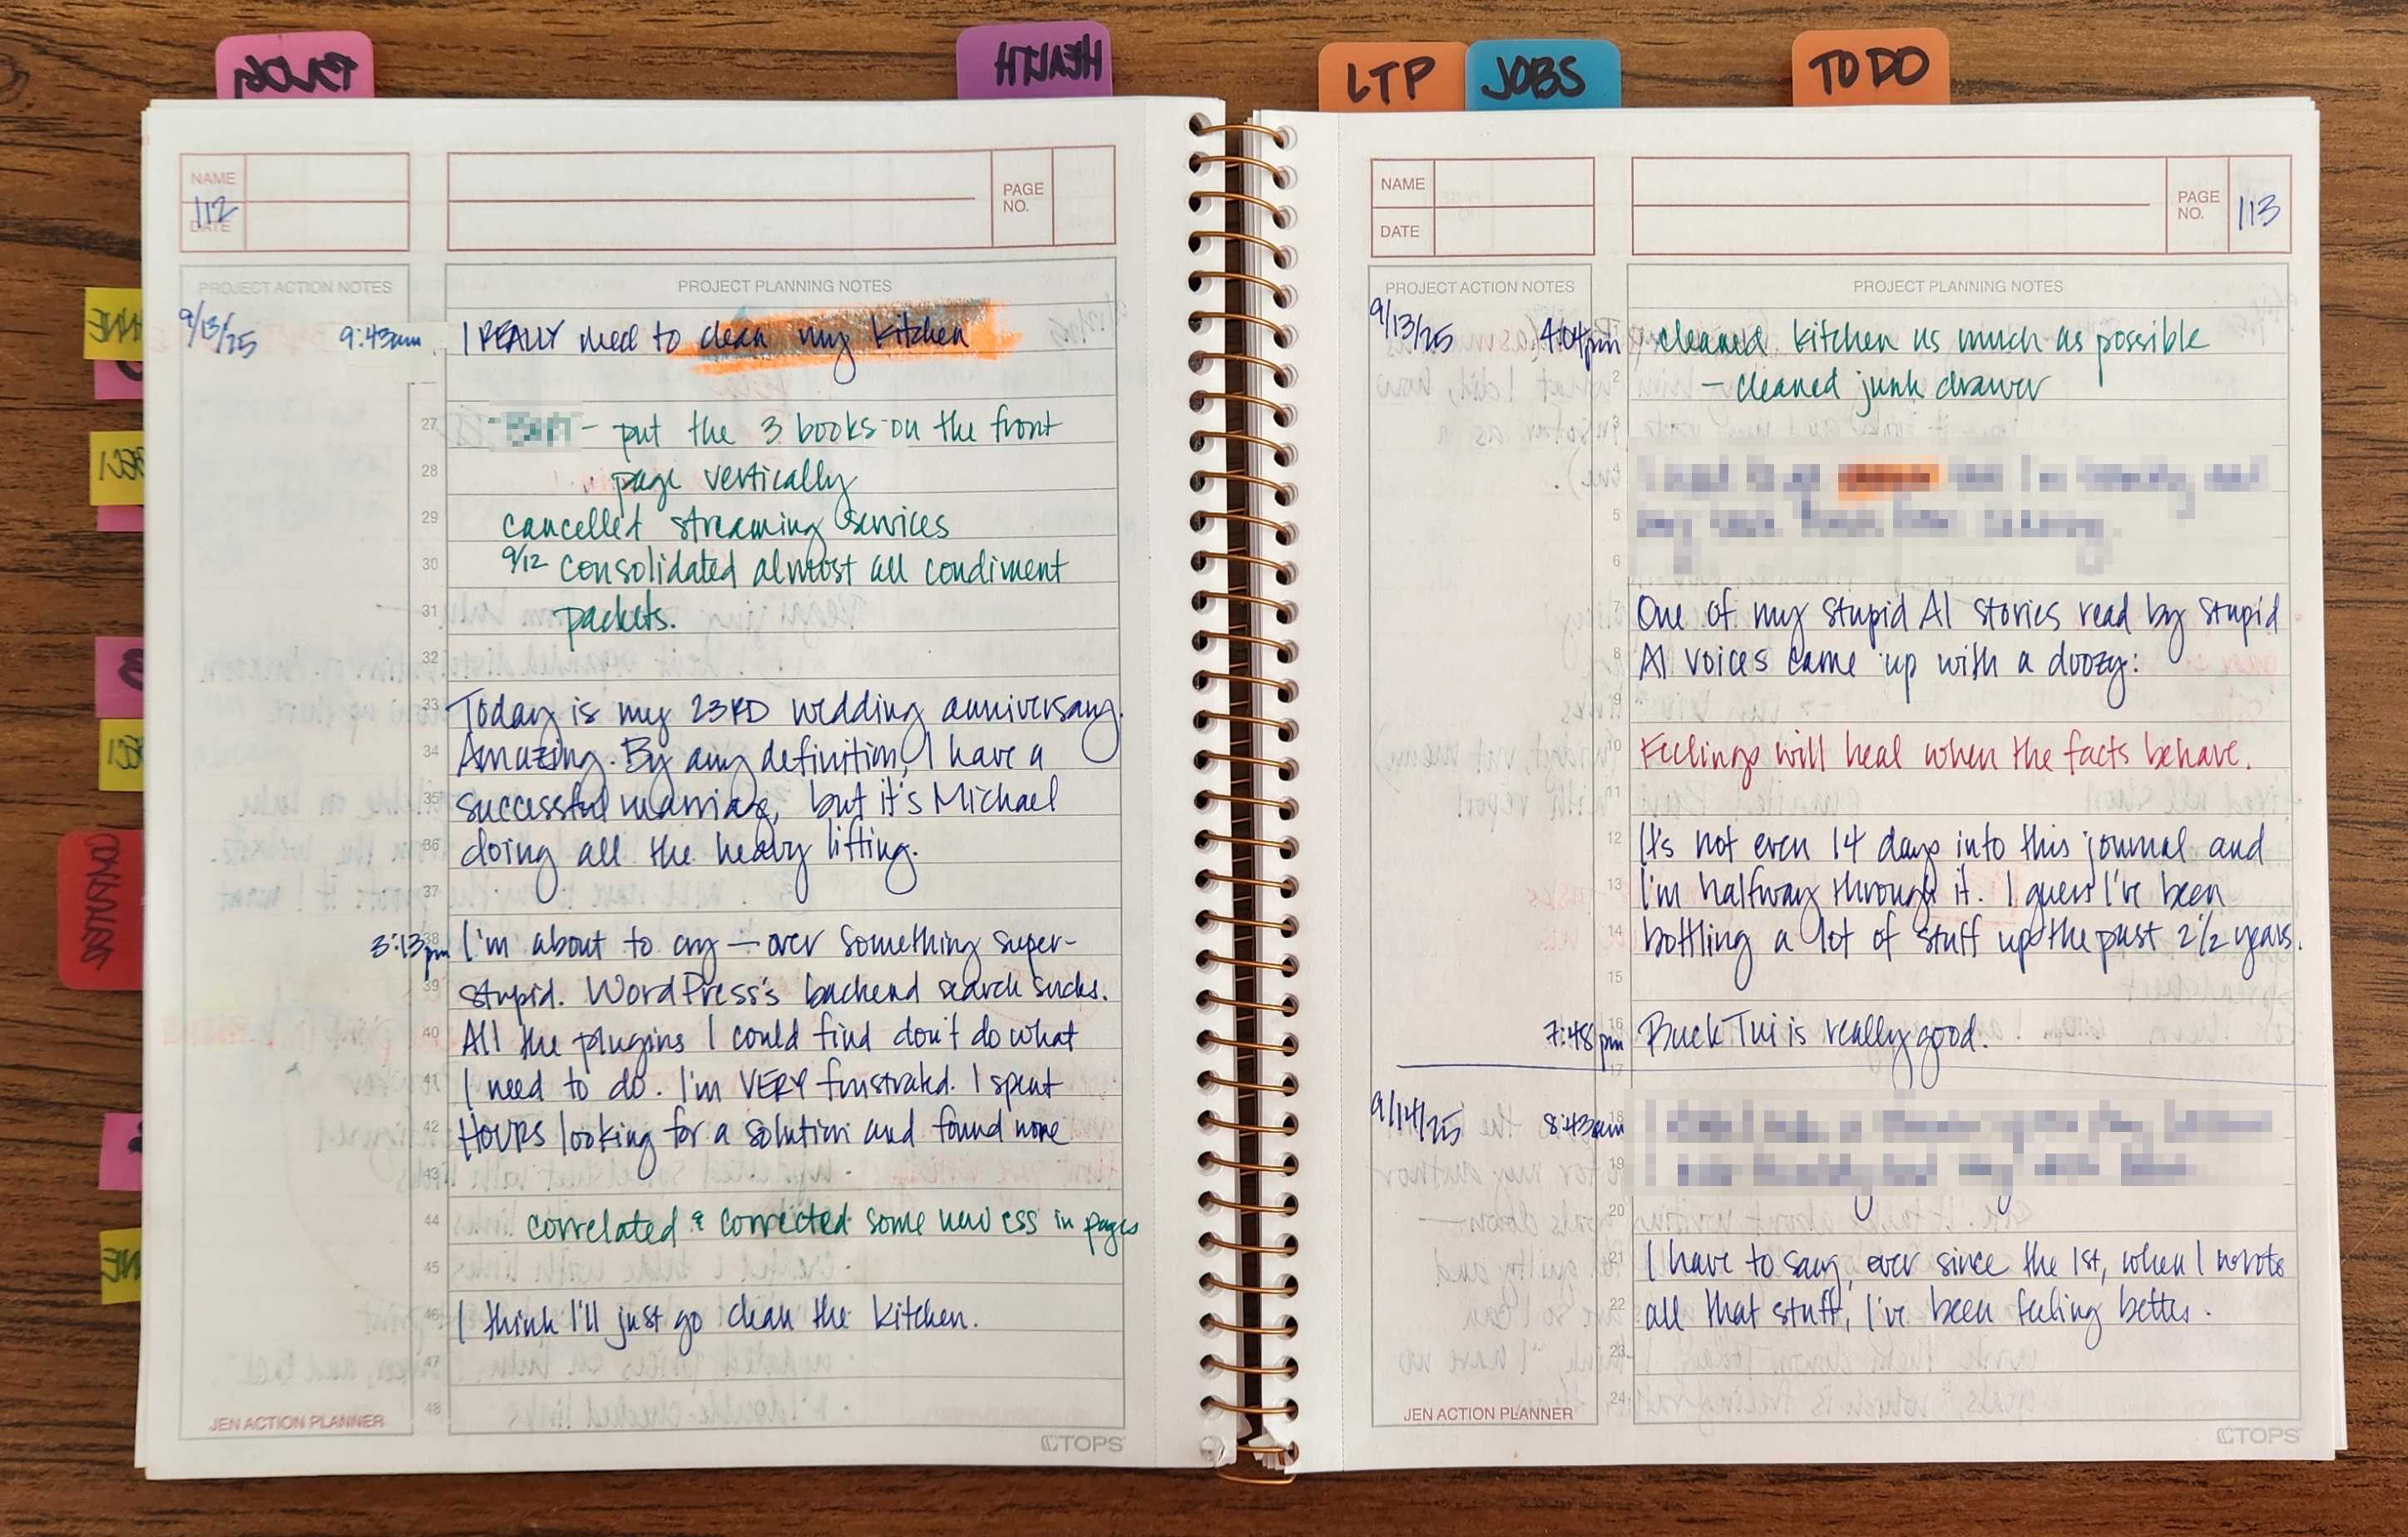 HEALTH
LTP
JOBS
TO DO
NAME
112
DATE
PAGE
NO.
PROJECT ACTION NOTES
PROJECT PLANNING NOTES
9/13/25
9:43am
I REALLY need to clean my kitchen
27
- put the 3 books on the front
28
page vertically
29
cancelled streaming services
30
9/12 consolidated almost all condiment
31
packets.
32
33
Today is my 23RD wedding anniversary.
34
Amazing. By any definition, I have a
35
successful marriage, but it's Michael
36
doing all the heavy lifting.
37
38
3:13pm
I'm about to cry — over something super-
39
stupid. WordPress's backend search sucks.
40
All the plugins I could find don't do what
41
I need to do. I'm VERY frustrated. I spent
42
HOURS looking for a solution and found none
43
44
correlated & corrected some new css in pages
45
46
I think I'll just go clean the kitchen.
47
48
JEN ACTION PLANNER
TOPS
NAME
DATE
PAGE
NO.
113
PROJECT ACTION NOTES
PROJECT PLANNING NOTES
9/13/25
4:04pm
cleaned kitchen as much as possible
2
- cleaned junk drawer
5
6
7
One of my stupid AI stories read by stupid
8
AI voices came up with a doozy:
9
10
Feelings will heal when the facts behave.
11
12
It's not even 14 days into this journal and
13
I'm halfway through it. I guess I've been
14
bottling a lot of stuff up the past 2 1/2 years.
15
16
7:48pm
Buck Tui is really good.
17
18
9/14/25
8:43am
19
20
21
I have to say, ever since the 1st, when I wrote
22
all that stuff, I've been feeling better.
23
24
JEN ACTION PLANNER
TOPS